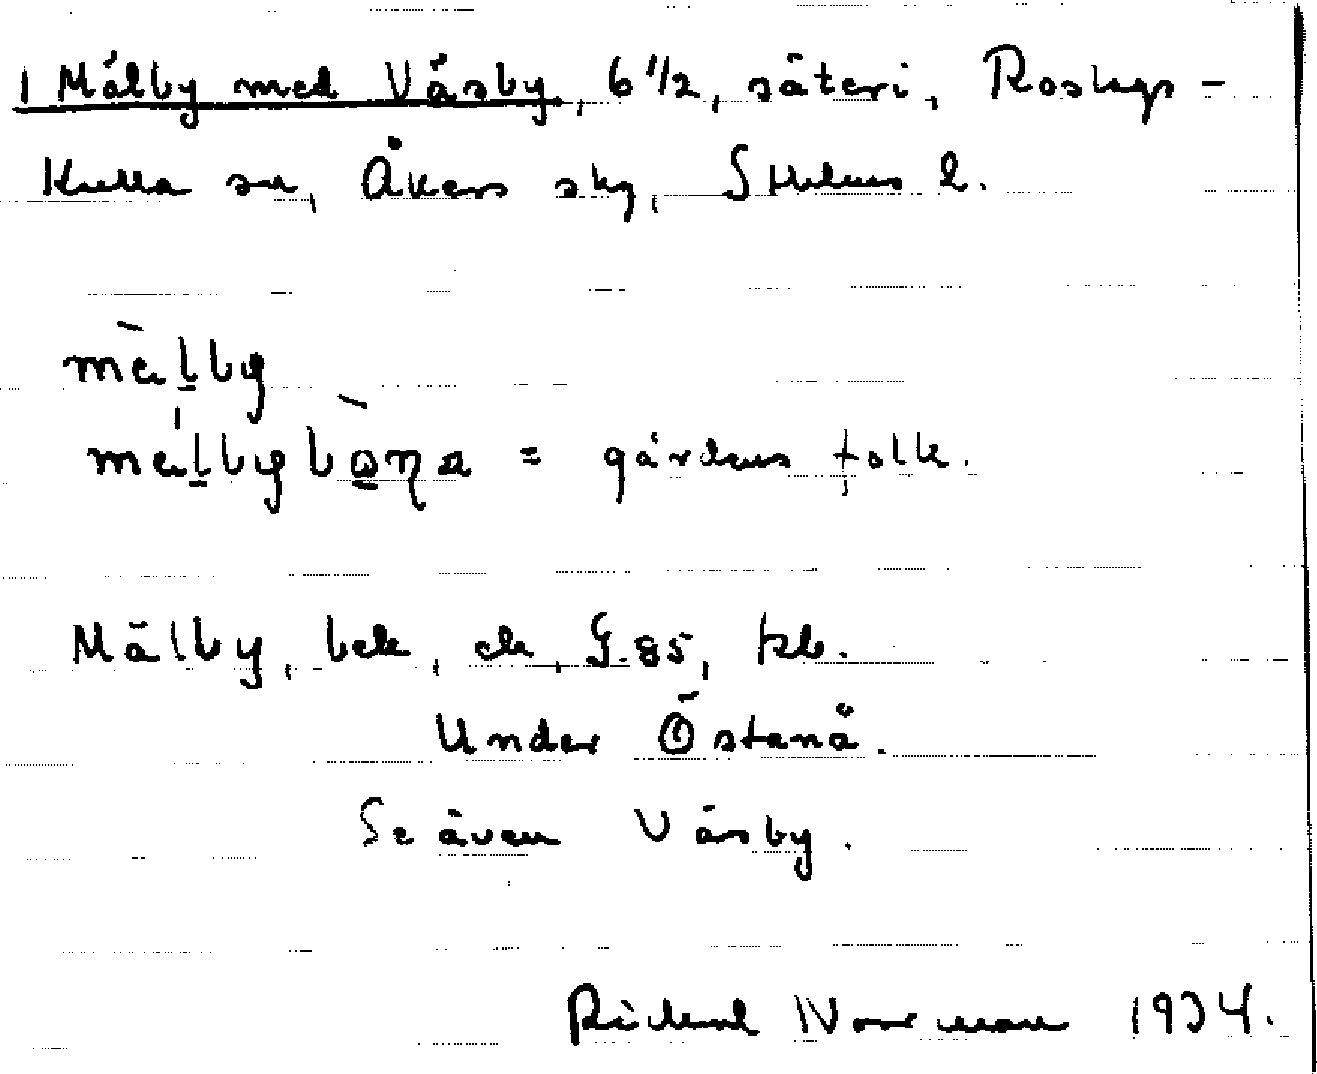 1 Målby med Väsby, 6 1/2, säteri, Roslags-
Kulla sn, Åkers skg, Sthlms l.
mālby
mālbybòŋa = gårdens folk.
Mälby, bek, ek, G.85, kb.
Under Östanå.
Se även Väsby.
Rickard Norrman 1934.